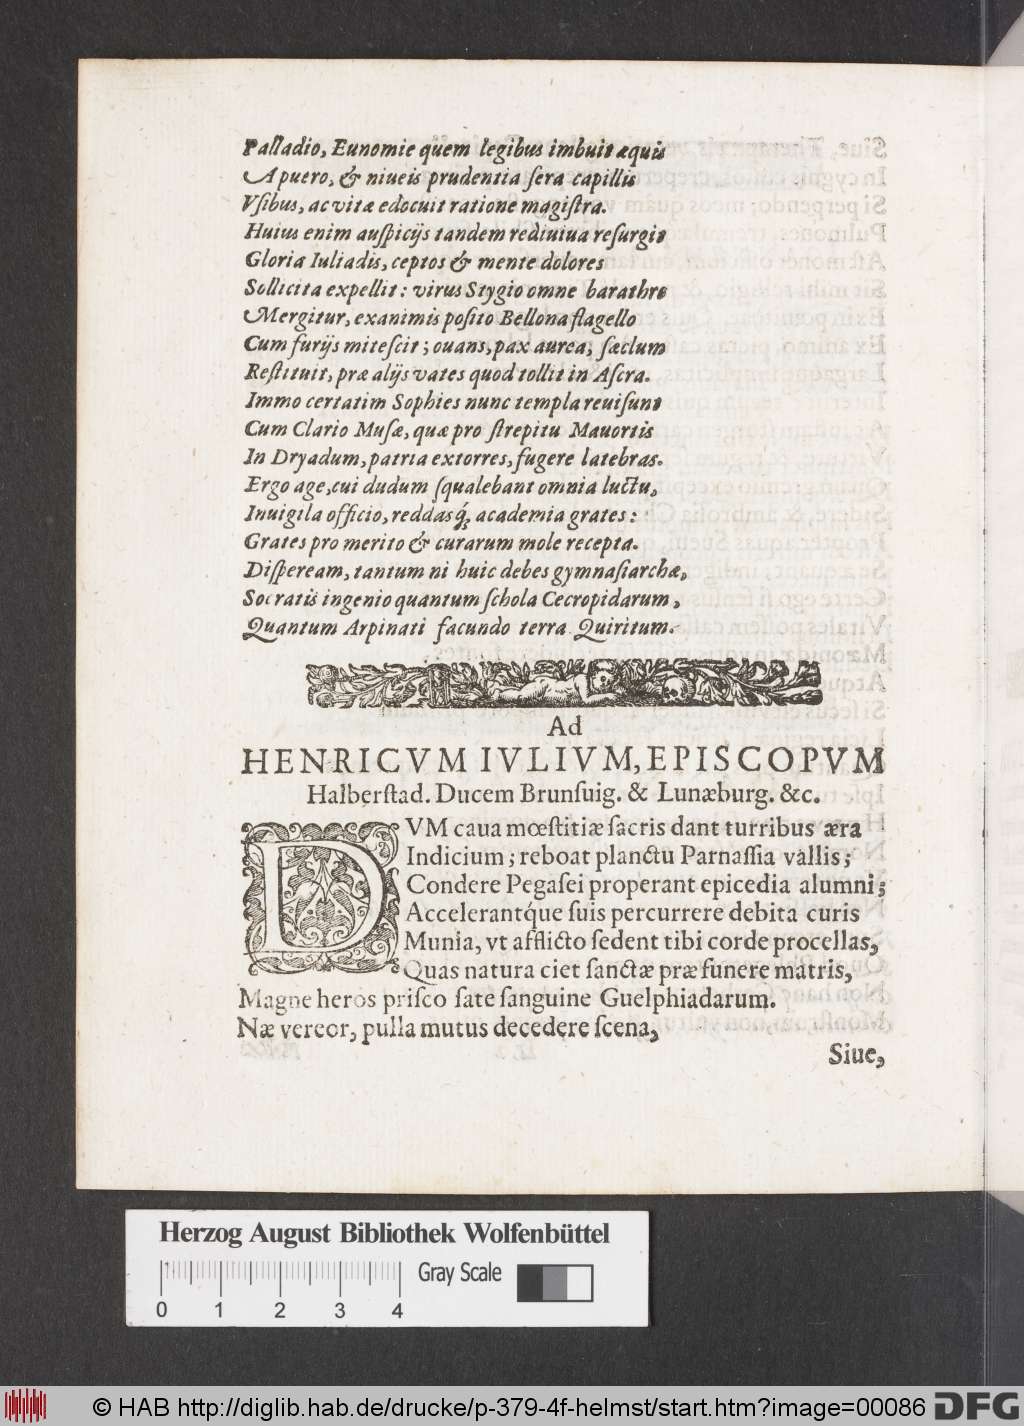 Palladio, Eunomie quem legibus imbuit æquis
A puero, & niueis prudentia sera capillis
Vſibus, ac vitæ edocuit ratione magiſtra.
Huius enim auſpicijs tandem rediuiua reſurgit
Gloria Iuliadis, ceptos & mente dolores
Sollicita expellit: virus Stygio omne barathro
Mergitur, exanimis poſito Bellona flagello
Cum furijs miteſcit; ouans, pax aurea, ſæclum
Reſtituit, præ alijs vates quod tollit in Aſcra.
Immo certatim Sophies nunc templa reuiſunt
Cum Clario Muſæ, quæ pro ſtrepitu Mauortis
In Dryadum, patria extorres, fugere latebras.
Ergo age, cui dudum ſqualebant omnia luctu,
Inuigila officio, reddasq́; academia grates:
Grates pro merito & curarum mole recepta.
Diſpeream, tantum ni huic debes gymnaſiarchæ,
Socratis ingenio quantum ſchola Cecropidarum,
Quantum Arpinati facundo terra Quiritum.
Ad
HENRICVM IVLIVM, EPISCOPVM
Halberſtad. Ducem Brunſuig. & Lunæburg. &c.
DVM caua mœſtitiæ ſacris dant turribus æra
Indicium; reboat planctu Parnaſſia vallis;
Condere Pegaſei properant epicedia alumni;
Accelerantq́ue ſuis percurrere debita curis
Munia, vt afflicto ſedent tibi corde procellas,
Quas natura ciet ſanctæ præ funere matris,
Magne heros priſco ſate ſanguine Guelphiadarum.
Næ vereor, pulla mutus decedere ſcena,
Siue,
Herzog August Bibliothek Wolfenbüttel
Gray Scale
0 1 2 3 4
© HAB http://diglib.hab.de/drucke/p-379-4f-helmst/start.htm?image=00086
DFG